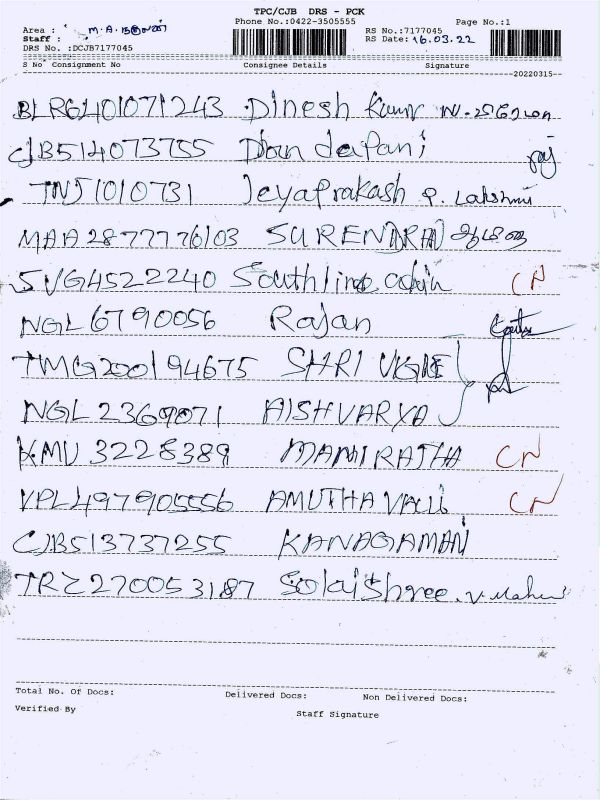 TPC/CJB DRS - PCK
Phone No.:0422-3505555 Page No.:1
Area : M.A.
Staff : RS No.:7177045
DRS No. :DCJB7177045 RS Date: 16.03.22
S No Consignment No Consignee Details Signature
20220315
BLRG401071243 Dinesh kumr
CJB514073755 Dan dapani raj
TNJ1010731 Jeyaprakash P. Lakshmi
MAA2877776103 SURENDRAN
SVG4522240 Southline CN
NGL 6790056 Rajan
TMG200194675 SHRI
NGL 2369071 AISHVARYA
KMU 3228389 MANIRATHA CN
VPL497905556 AMUTHA VALLi CN
CJB513737255 KANAGAMANI
TRZ270053187 Solaishree. V.
Total No. Of Docs: Delivered Docs: Non Delivered Docs:
Verified By Staff Signature